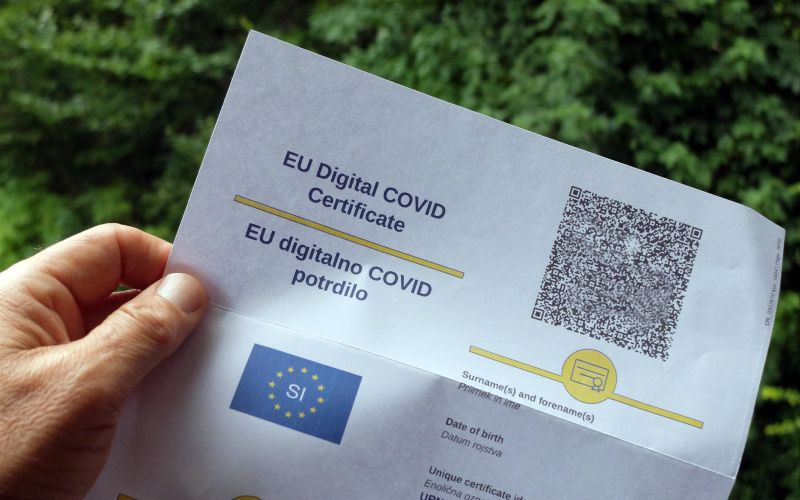 EU Digital COVID
Certificate
EU digitalno COVID
potrdilo
SI
Surname(s) and forename(s)
Priimek in ime
Date of birth
Datum rojstva
Unique certificate
Enolična